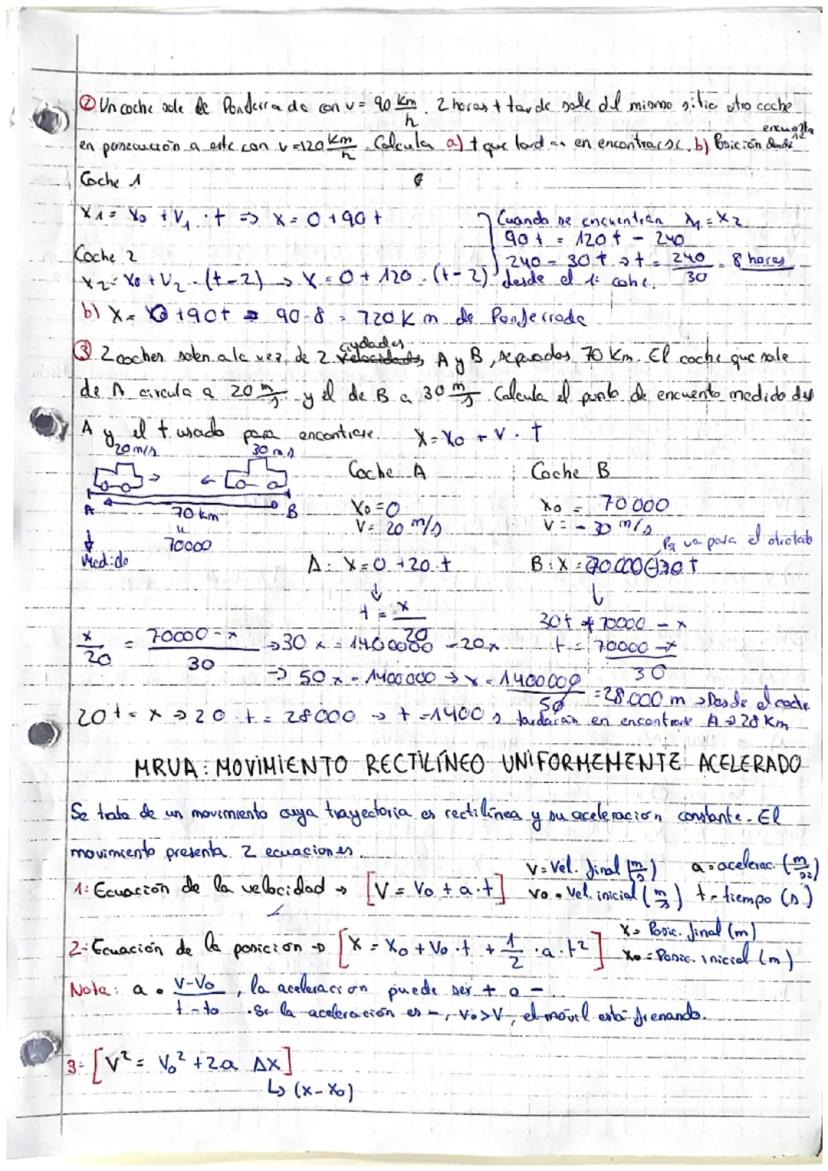 ② Un coche sale de Ponferrada con v = 90 km/h. 2 horas + tarde sale del mismo sitio otro coche
en persecución a este con v = 120 km/h. Calcula a) t que tardan en encontrarse. b) Posición donde encuentra
Coche 1
X1 = X0 + V1 · t => X = 0 + 90t
Cuando se encuentren X1 = X2
90t = 120t - 240
Coche 2
240 - 30t → t = 240/30 = 8 horas
X2 = X0 + V2 · (t-2) → X = 0 + 120 · (t-2)
desde el 1º coche.
b) X = X0 + 90t = 90·8 = 720 Km de Ponferrada
③ 2 coches salen a la vez de 2 velocidades ciudades A y B, separados 70 Km. El coche que sale
de A circula a 20 m/s y el de B a 30 m/s Calcula el punto de encuento medido des
A y el t usado para encontrarse. X = X0 + V · T
20 m/s 30 m/s
Coche A Coche B
A 70 km B
X0 = 0 X0 = 70 000
V = 20 m/s V = - 30 m/s
70000
Medido
Pq va para el otro lado
A: X = 0 + 20 · t B: X = 70.000 - 30 t
t = x/20 30t = 70000 - x
x/20 = 70000 - x/30 → 30 x = 1400000 - 20x t = 70000 - x/30
→ 50 x = 1400000 → x = 1400000/50 = 28.000 m → Desde el coche
20 t = x → 20 · t = 28000 → t = 1400 s tardarán en encontrarse A → 28 Km
MRUA: MOVIMIENTO RECTILÍNEO UNIFORMEMENTE ACELERADO
Se trata de un movimiento cuya trayectoria es rectilínea y su aceleración constante. El
movimiento presenta 2 ecuaciones.
V = Vel. final (m/s) a = acelerac. (m/s2)
1: Ecuación de la velocidad → [V = V0 + a · t] V0 = Vel. inicial (m/s) t = tiempo (s.)
X = Posic. final (m)
2: Ecuación de la posición → [X = X0 + V0 · t + 1/2 · a · t²] X0 = Posic. inicial (m)
Nota: a = V-V0/t-t0, la aceleración puede ser + o -
· Si la aceleración es -, V0 > V, el móvil está frenando.
3: [V² = V0² + 2a ΔX]
↳ (X - X0)